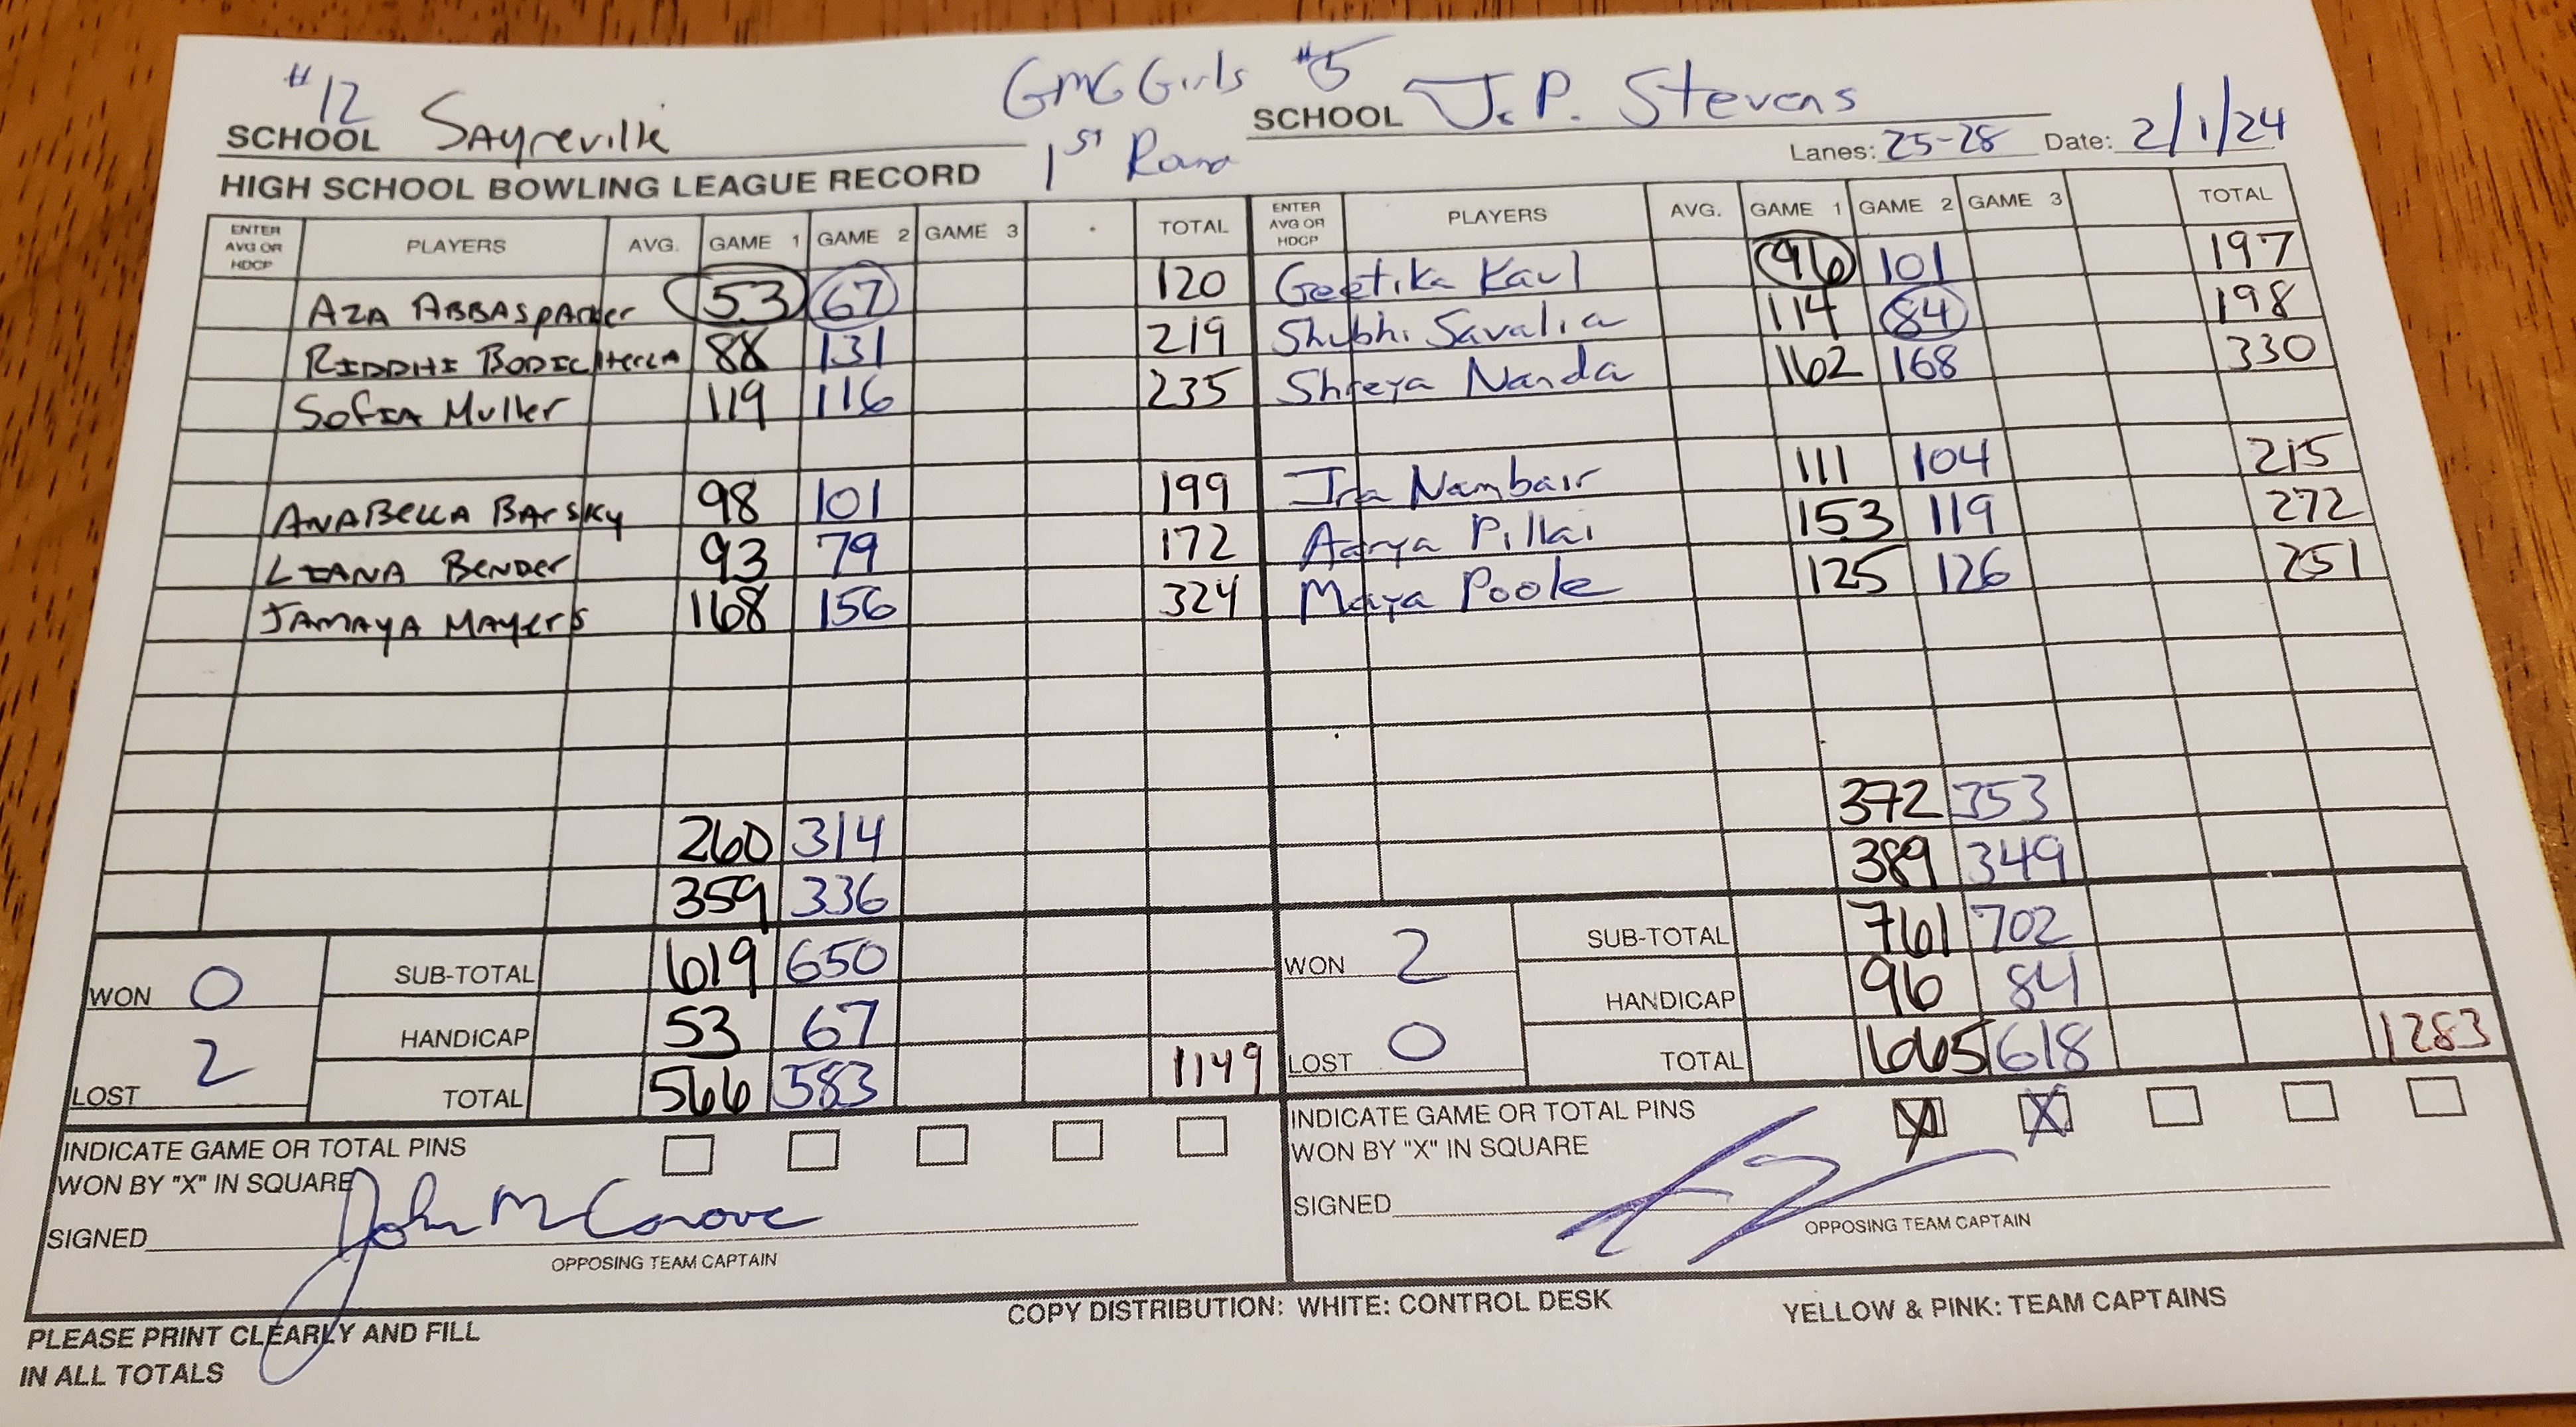 #12 GMC Girls #5
SCHOOL Sayreville 1st Round SCHOOL J.P. Stevens
HIGH SCHOOL BOWLING LEAGUE RECORD Lanes: 25-28 Date: 2/1/24
ENTER AVG OR HDCP PLAYERS AVG. GAME 1 GAME 2 GAME 3 TOTAL ENTER AVG OR HDCP PLAYERS AVG. GAME 1 GAME 2 GAME 3 TOTAL
AZA 53 67 120 Geetika Kaul 96 101 197
RIDDHI 88 131 219 Shubhi Savalia 114 84 198
SOFIA Muller 119 116 235 Shreya Nanda 162 168 330
ANABELLA BARSKY 98 101 199 Ira Nambair 111 104 215
LIANA Bender 93 79 172 Aarya Pillai 153 119 272
JAMAYA MAYERS 168 156 324 Maya Poole 125 126 251
260 314 372 353
359 336 389 349
WON 0 SUB-TOTAL 619 650 WON 2 SUB-TOTAL 761 702
HANDICAP 53 67 HANDICAP 96 84
LOST 2 TOTAL 566 583 1149 LOST 0 TOTAL 665 618 1283
INDICATE GAME OR TOTAL PINS INDICATE GAME OR TOTAL PINS X X
WON BY "X" IN SQUARE WON BY "X" IN SQUARE
SIGNED John SIGNED
OPPOSING TEAM CAPTAIN OPPOSING TEAM CAPTAIN
COPY DISTRIBUTION: WHITE: CONTROL DESK YELLOW & PINK: TEAM CAPTAINS
PLEASE PRINT CLEARLY AND FILL
IN ALL TOTALS